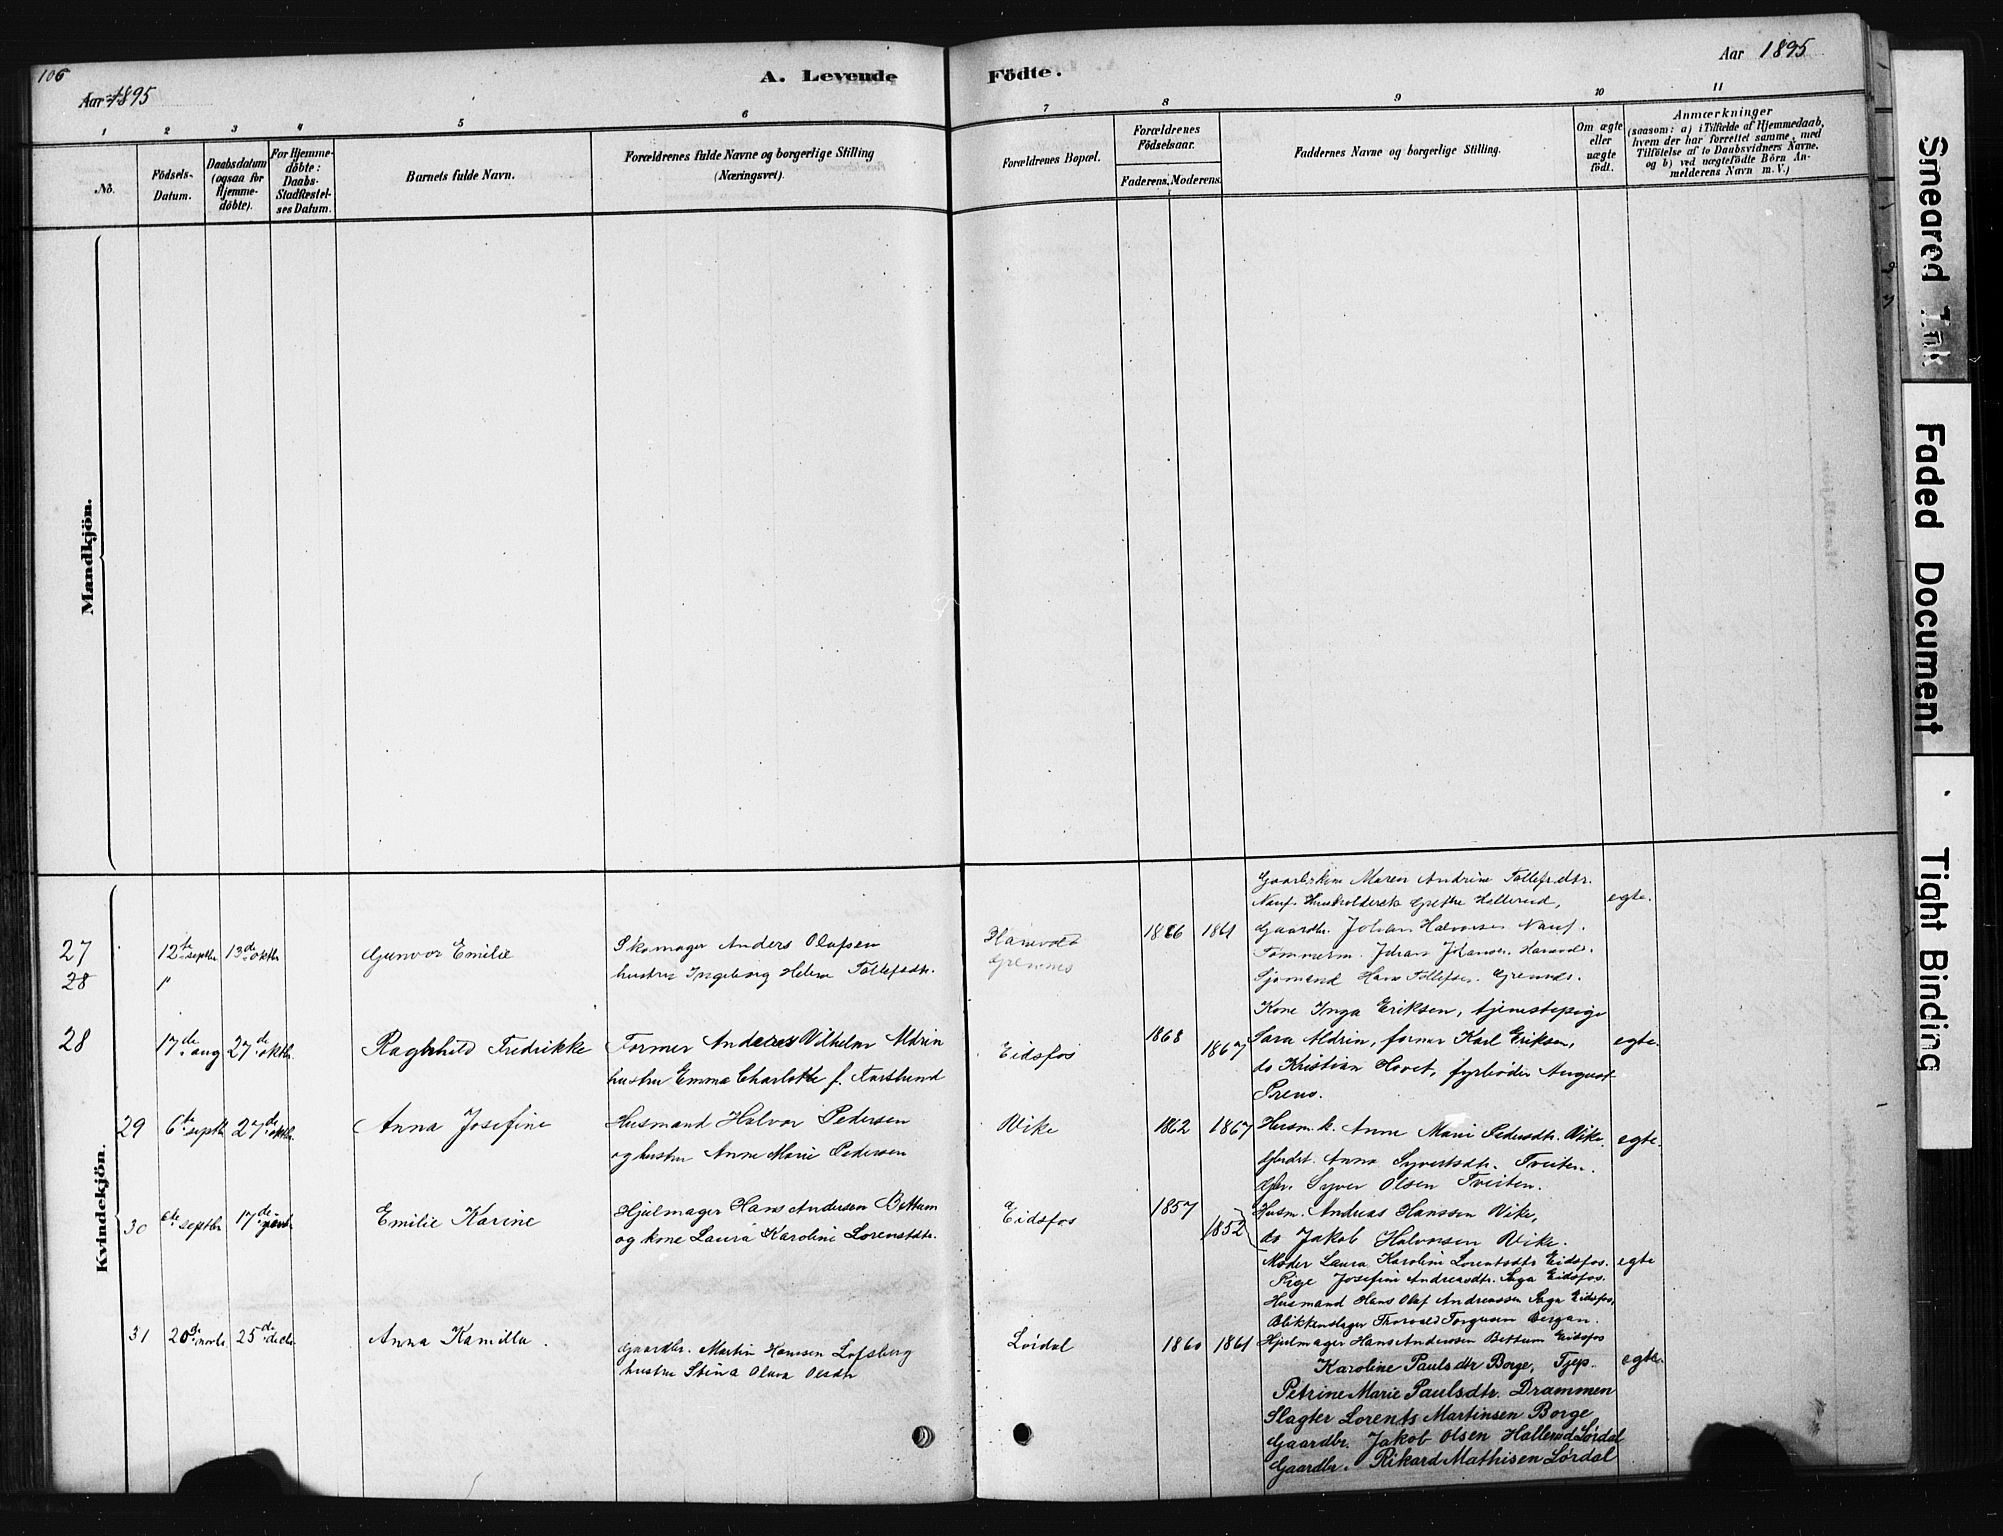 106
Aar 1895
A. Levende
Födte.
Aar 1895
1
2
3
4
5
6
7
8
9
10
11
No.
Födsels-
Datum.
Daabsdatum
(ogsaa for
Hjemme-
döbte).
For Hjemme-
döbte:
Daabs-
Stadfæstel-
ses Datum.
Barnets fulde Navn.
Forældrenes fulde Navne og borgerlige Stilling
(Næringsvei).
Forældrenes Bopæl.
Forældrenes
Födselsaar.
Faderens.
Moderens.
Faddernes Navne og borgerlige Stilling.
Om ægte
eller
uægte
födt.
Anmærkninger
(saasom: a) i Tilfælde af Hjemmedaab,
hvem der har forrettet samme, med
Tilföielse af to Daabsvidners Navne.
og b) ved uægtefödte Börn An-
melderens Navn m. V.)
Mandkjön.
Kvindekjön.
27
12te septbr
13de oktbr
Gunvor Emilie
Skomager Anders Olafsen
hustru Ingeborg Helene Tollefsdtr.
Hanevold
Grennes
1866
1861
Maren Andrine Tollefsdtr.
Grethe Hallerud,
Gaardbr. Johan Halvorsen
Tømmerm. Johan Johansen
Sjømand Hans Tollefsen
egte.
28
"
28
17de aug
27de oktbr.
Raghnhild Fredrikke
Former Anders Vilhelm Aldrin
hustru Emma Charlotte f. Forslund
Eidsfos
1868
1867
Kone Inga Eriksen, tjenestepige
Sara Aldrin, former Karl Eriksen,
do Kristian Hovet, fyrbøder August
egte.
29
6te septbr
27de oktbr.
Anna Josefine
Husmand Halvor Pedersen
og hustru Anne Marie Pedersen
Vike
1862
1867
Husm. k. Anne Marie Pedersdtr. Vike.
Anna Syvertsdtr. Tveiten.
Gbr. Syver Olsen Tveiten.
Husm. Andreas Hanssen Vike,
do Jakob Halvorsen Vike.
egte.
30
6te septbr
17de
Emilie Karine
Hjulmager Hans Andersen Bettum
og kone Laura Karoline Lorentsdtr.
Eidsfos
1857
1852
Moder Laura Karoline Lorentsdtr Eidsfos.
Pige Josefine Andreasdtr. Saga Eidsfos.
Husmand Hans Olaf Andreassen Saga Eidsfos,
Blikkenslager Thorvald Torgersen Bergan.
Hjulmager Hans Anderssen Bettum Eidsfos
egte
31
20de novbr
25de decbr
Anna Kamilla.
Gaardbr. Martin Hansen Lofsberg
hustru Stina Olava Olsdtr
Lørdal
1860
1861
Karoline Paulsdtr Borge, Tjep.
Petrine Marie Paulsdtr. Drammen
Slagter Lorents Martinsen Borge
Gaardbr. Jakob Olsen Hallerud Lørdal
Gaardbr. Rikard Mathisen Lørdal
egte.
Smeared Ink
Faded Document
Tight Binding